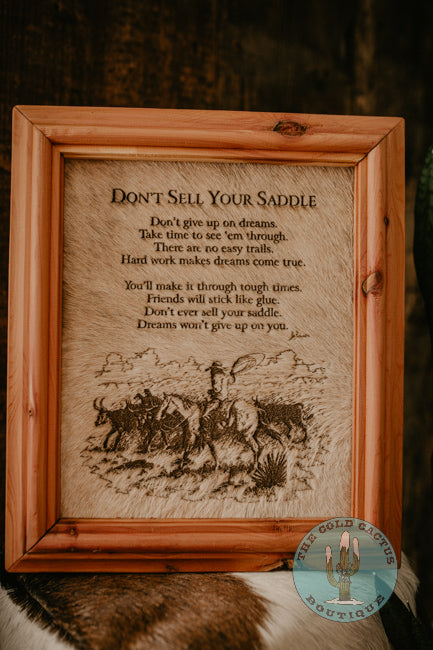 DON'T SELL YOUR SADDLE
Don't give up on dreams.
Take time to see 'em through.
There are no easy trails.
Hard work makes dreams come true.
You'll make it through tough times.
Friends will stick like glue.
Don't ever sell your saddle.
Dreams won't give up on you.
THE COLD CACTUS
BOUTIQUE